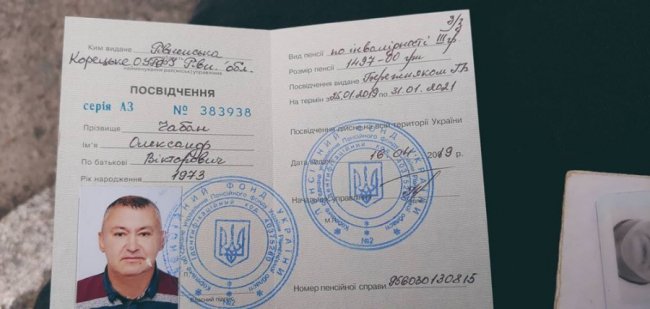 Ким видане Рівненська
Корецьке ОУПФУ Рівн. обл.
ПОСВІДЧЕННЯ
серія АЗ № 383938
Прізвище Чабан
Ім'я Олександр
По батькові Вікторович
Рік народження 1973
3/3
Вид пенсії по інвалідності ІІІ гр
Розмір пенсії 1497-00 грн
Посвідчення видане
На термін 25.01.2019 31.01.2021
Посвідчення дійсне на всій території України
Дата видачі 16.04.2019 р.
Начальник управління
М.П.
Номер пенсійної справи 956030130815
ПЕНСІЙНИЙ ФОНД УКРАЇНИ
№2
ПЕНСІЙНИЙ ФОНД УКРАЇНИ
№2